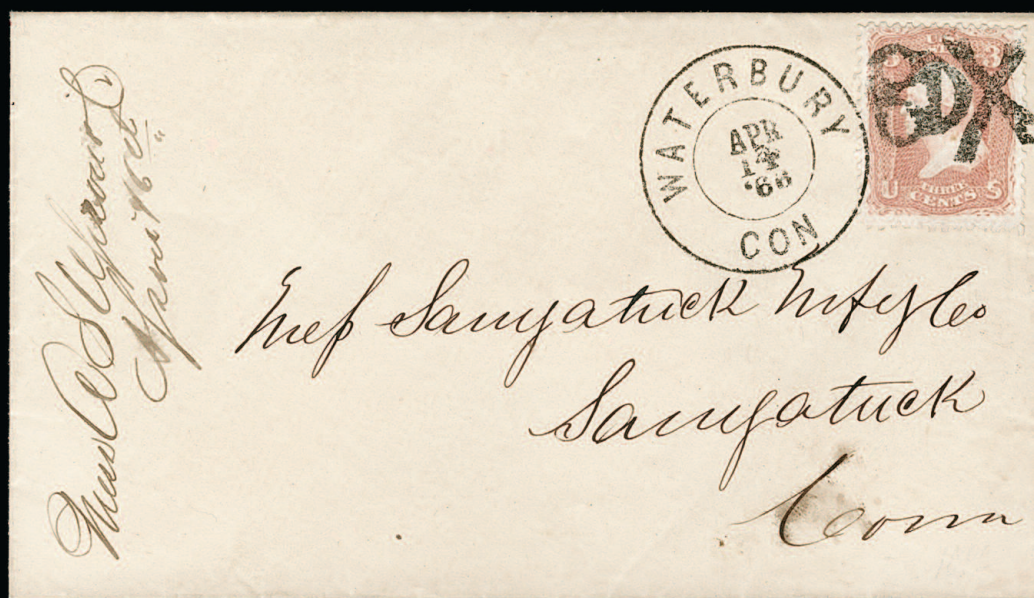 WATERBURY
APR
14
'66
CON
3 3
U THREE S
CENTS
Mess Saugatuck Mfg Co
Saugatuck
Conn
April 16